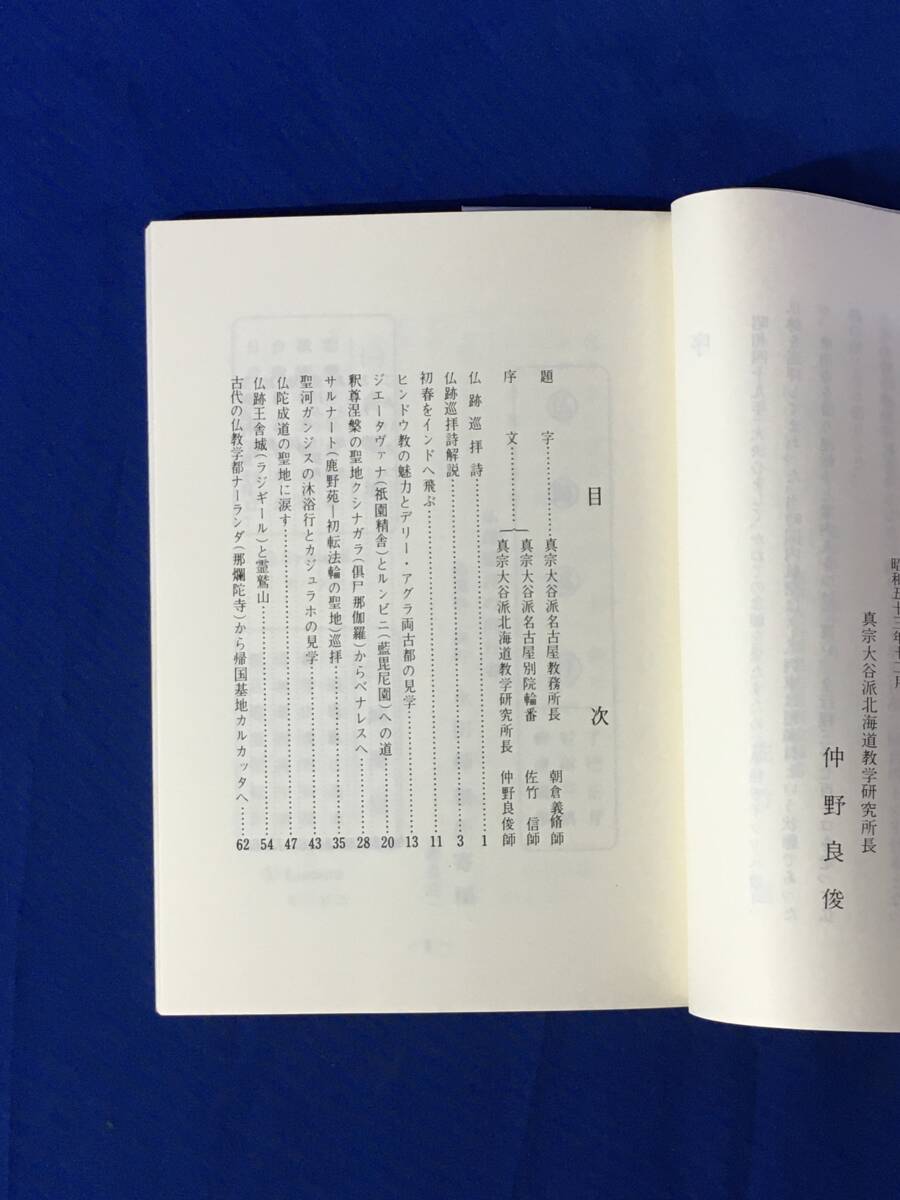 昭和五十三年十二月
真宗大谷派北海道教学研究所長
仲野良俊
目次
題字……………真宗大谷派名古屋教務所長 朝倉義脩師
序文……………真宗大谷派名古屋別院輪番 佐竹信師
真宗大谷派北海道教学研究所長 仲野良俊師
仏跡巡拝詩……………1
仏跡巡拝詩解説……………3
初春をインドへ飛ぶ……………11
ヒンドウ教の魅力とデリー・アグラ両古都の見学……………13
ジエータヴァナ(祇園精舎)とルンビニ(藍毘尼園)への道……………20
釈尊涅槃の聖地クシナガラ(倶尸那伽羅)からベナレスへ……………28
サルナート(鹿野苑―初転法輪の聖地)巡拝……………35
聖河ガンジスの沐浴行とカジュラホの見学……………43
仏陀成道の聖地に涙す……………47
仏跡王舎城(ラジギール)と霊鷲山……………54
古代の仏教学都ナーランダ(那爛陀寺)から帰国基地カルカッタへ……………62
序